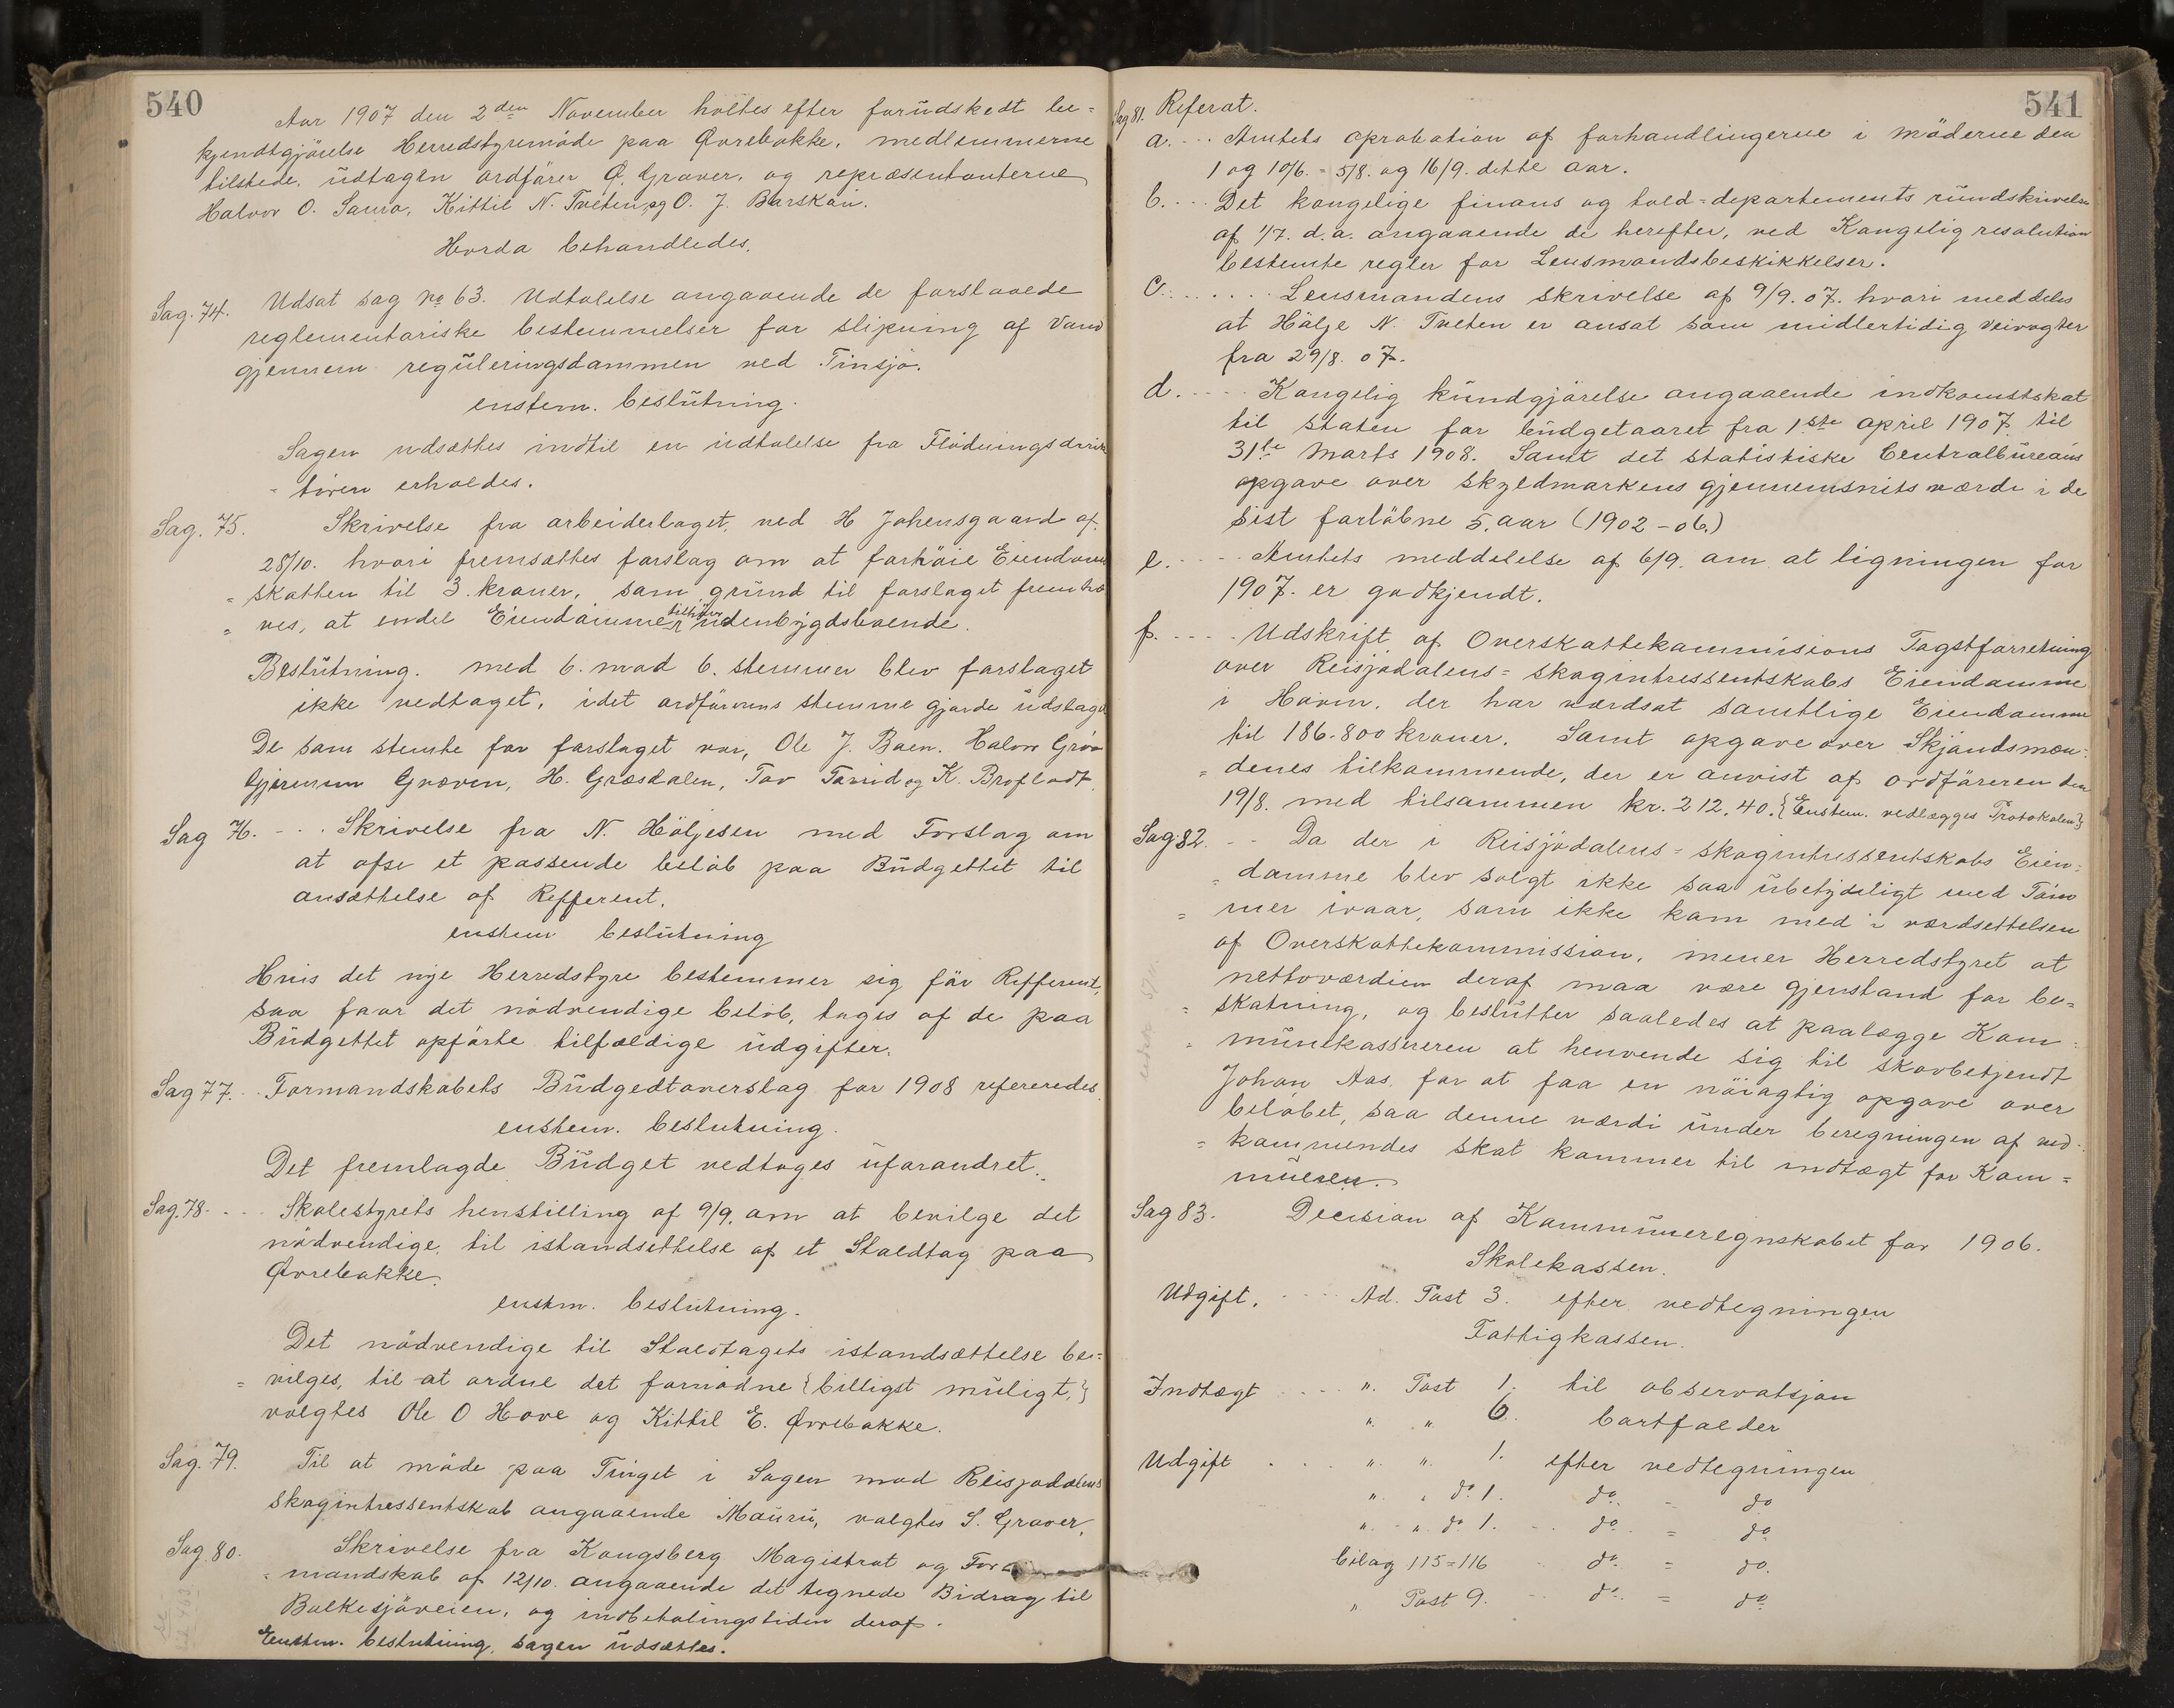 540
Aar 1907 den 2den November holtes efter forudskedt be=
kjendtgjörelse Herredstyremöde paa Övrebökke, medlemmerne
tilstede, udtagen ordförer O. Graver, og repræsentanterne
Halvor O. Saura, Kittil N. Tveten, og O. J. Barskan.
Hvorda behandledes.
Sag. 74. Udsat sag No 63. Udtalelse angaaende de forslaaede
reglementariske bestemmelser for slipning af Vand
gjennem reguleringsdammen ved Tinsjö.
enstem. beslutning.
Sagen udsættes indtil en udtalelse fra Flödningsdirek
= tören erholdes.
Sag. 75. Skrivelse fra arbeiderlaget, ved H Johensgaard af.
28/10. hvori fremsættes forslag om at forhöie Eiendoms
= skatten til 3. kroner, som grund til forslaget fremhæ
= ves, at endel Eiendomme tilhörer udenbygdsboende.
Beslutning. med 6. mod 6. stemmer blev forslaget
ikke vedtaget, idet ordförerens stemme gjorde udslaget.
De som stemte for forslaget var, Ole J. Baen. Halvor Gröv
Gjermun Græven, H. Græsdalen, Tov Tovrud og K. Brofladt.
Sag 76. - . . Skrivelse fra N. Höljesen med Forslag om
at ofse et passende belöb paa Büdgettet til
ansættelse af Refferent.
enstem beslutning
Hvis det nye Herredstyre bestemmer sig för Refferent,
saa faar det nödvendige belöb, tages af de paa
Büdgettet opförte tilfældige udgifter.
Sag 77. . . Formandskabets Büdgedtoverslag for 1908 refereredes.
enstem. beslutning.
Det fremlagde Büdget vedtages uforandret.
Sag. 78. . . . Skolestyrets henstilling af 9/9. om at bevilge det
nödvendige, til istandsettelse af et Staldtag paa
Övrebökke.
enstm. beslutning.
Det nödvendige til Staldtagets istandsættelse be=
= vilges, til at ordne det fornödne {billigst muligt,}
valgtes Ole O Hove og Kittil E. Övrebökke.
Sag. 79. Til at möde paa Tinget i Sagen mod Reisjödalens
skogintressentskab angaaende Mauru, valgtes S. Graver.
Sag. 80. Skrivelse fra Kongsberg Magistrat og For
= mandskab af 12/10. angaaende det tegnede Bidrag til
Bolkesjöveien, og indbetalingstiden deraf.
Enstem. beslutning, sagen udsættes.
541
Sag 81. Referat.
a. . . . Amtets aprobation af forhandlingerne i möderne den
1 og 10/6. = 5/8. og 16/9. dette aar.
b. . . . Det kongelige finans og told=departements rundskrivelse
af 1/7. d.a. angaaende de herefter, ved Kongelig resolution
bestemte regler for Lensmandsbeskikkelser.
c. . . . . . . Lensmandens skrivelse af 9/9. 07. hvori meddeles
at Hölje N. Tveten er ansat som midlertidig veivogter
fra 29/8. 07.
d. . . . . Kongelig kundgjörelse angaaende indkomstskat
til staten for budgetaaret fra 1ste april 1907. til
31te Marts 1908. Samt det statistiske Centralbüreaus
opgave over skyldmarkens gjennemsnits værdi i de
sist forlöbne 5. aar (1902 – 06.)
e. . . . . Amtets meddelelse af 6/9. om at ligningen for
1907. er godkjendt.
f. . . . . Udskrift af Overskattekommisions Tagstforretning
over Reisjödalens= skogintressentskabs Eiendomme
i Hovin, der har værdsat samtlige Eiendomme
til 186.800 kroner. Samt opgave over Skjöndsmæn=
= denes tilkommende, der er anvist af ordföreren den
19/8. med tilsammen kr. 212,40. {Enstem. vedlægges Protokolen}
Sag 82. . . Da der i Reisjödalens= skogintressentskabs Eien=
= domme blev solgt ikke saa ubetydeligt med Töm
= mer ivaar, som ikke kom med i værdsettelsen
af Overskattekommission, mener Herredstyret at
nettoværdien deraf maa være gjenstand for be=
= skatning, og beslutter saaledes at paalægge Kom=
= munekassereren at henvende sig til skovbetjendt
Johan Aas, for at faa en nöiagtig opgave over
belöbet, saa denne værdi under beregningen af ved=
= kommendes skat kommer til indtægt for Kom=
munen.
Sag 83. Decision af Kommuneregnskabet for 1906.
Skolekassen.
Udgift. . . . . Ad. Post 3. efter vedtegningen
Fattigkassen.
Indtægt . . . . ". Post 1. til observatsjon
". " 6. bortfalder
Udgift . . . . ". ". 1. efter vedtegningen
". " do. 1. do. = do
". ". do 1. . . do. = do.
bilag 115=116 . . do. = do.
" Post 9. . . do. = do